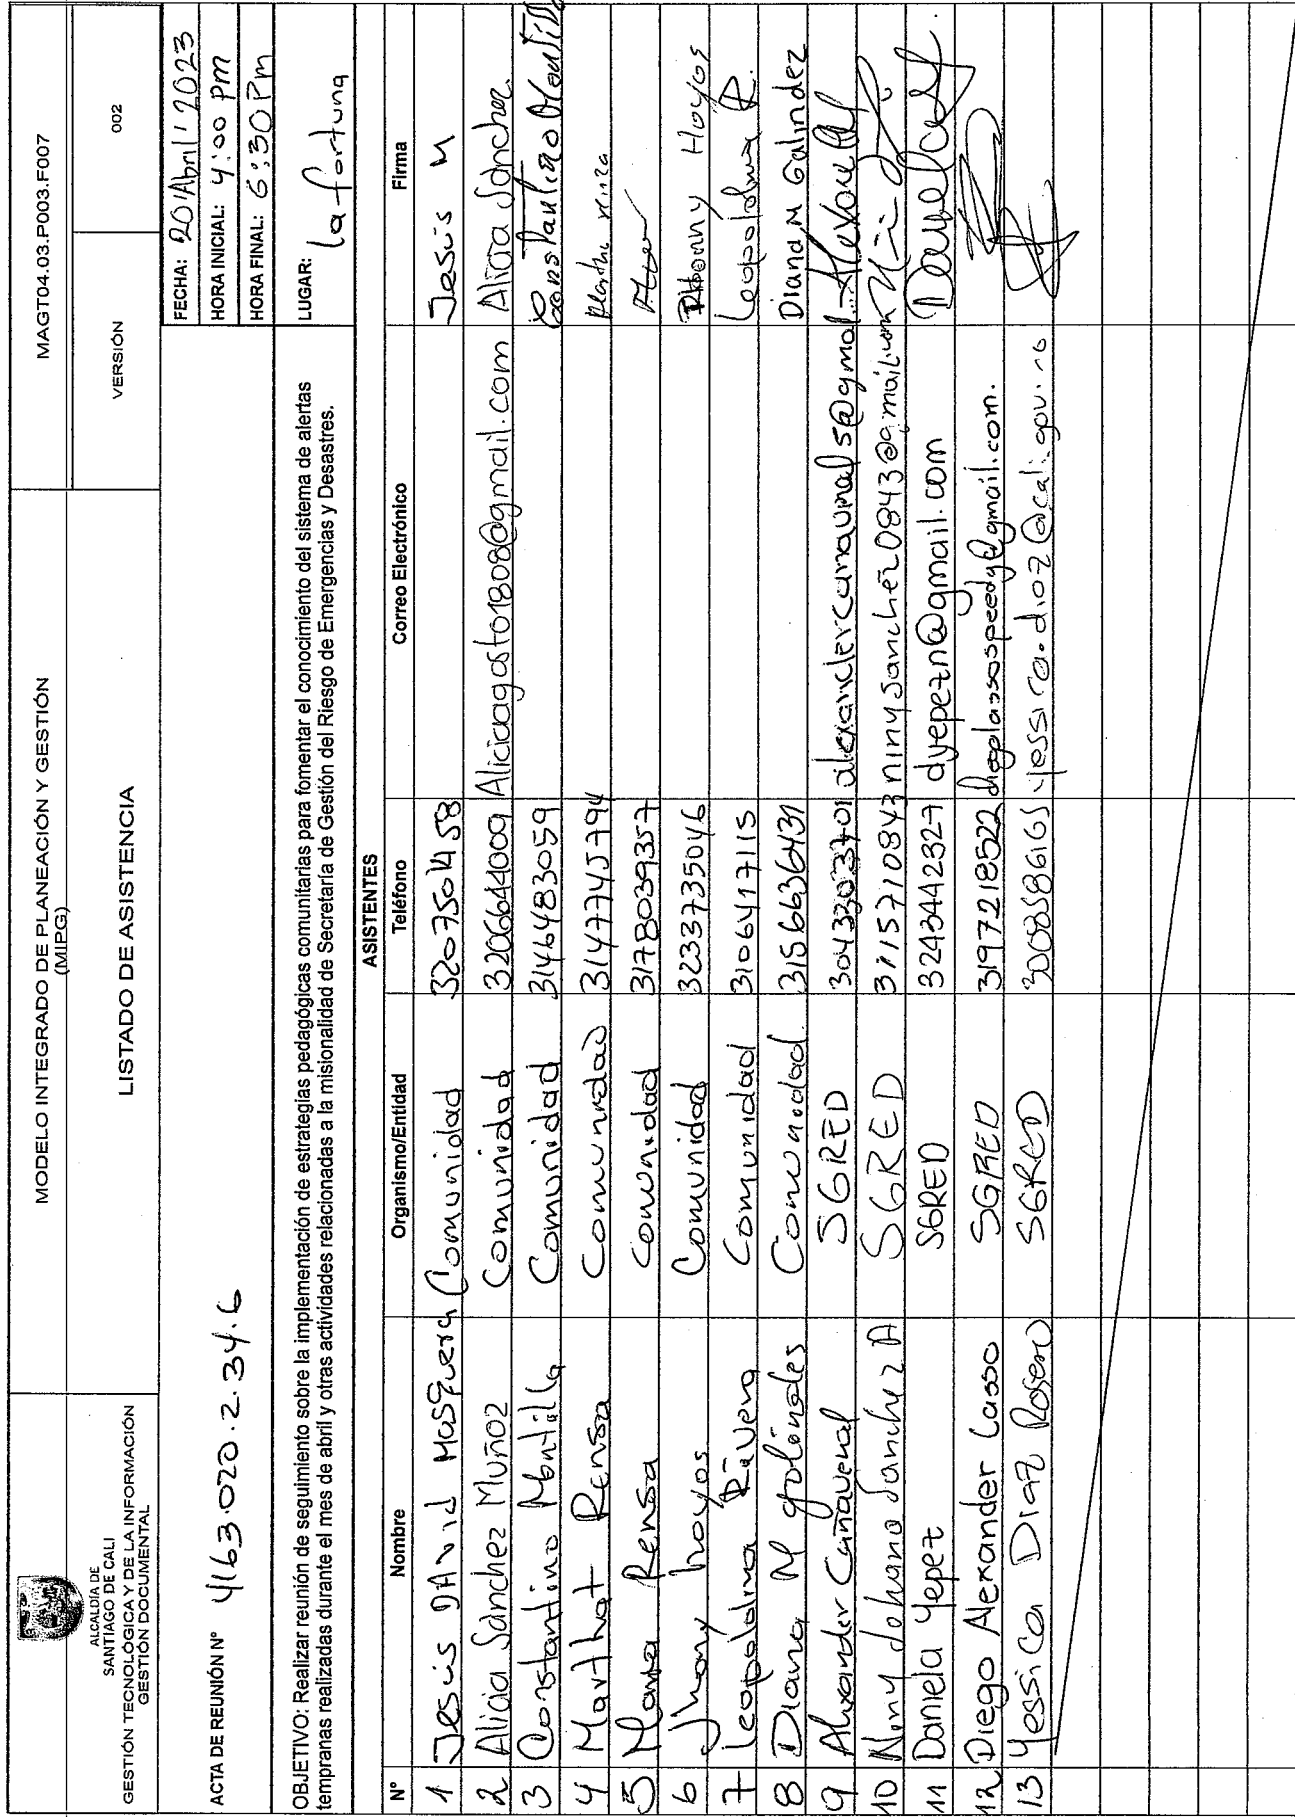 ALCALDÍA DE
SANTIAGO DE CALI
GESTIÓN TECNOLÓGICA Y DE LA INFORMACIÓN
GESTIÓN DOCUMENTAL
MODELO INTEGRADO DE PLANEACIÓN Y GESTIÓN
(MIPG)
LISTADO DE ASISTENCIA
MAGT04.03.P003.F007
VERSIÓN 002
ACTA DE REUNIÓN Nº 4163.020.2.34.6
FECHA: 20/Abril/2023
HORA INICIAL: 4:00 pm
HORA FINAL: 6:30 Pm
OBJETIVO: Realizar reunión de seguimiento sobre la implementación de estrategias pedagógicas comunitarias para fomentar el conocimiento del sistema de alertas
tempranas realizadas durante el mes de abril y otras actividades relacionadas a la misionalidad de Secretaría de Gestión del Riesgo de Emergencias y Desastres.
LUGAR: la fortuna
ASISTENTES
Nº Nombre Organismo/Entidad Teléfono Correo Electrónico Firma
1 Jesús DAvid Mosquera Comunidad 3207501458 Jesús M
2 Alicia Sánchez Muñoz Comunidad 3206644009 Aliciaagosto1808@gmail.com Alicia Sánchez
3 Constantino Montilla Comunidad 3146483059 Constantino Montilla
4 Marthat Rensa Comunidad 3147745794
5 Maria Rensa Comunidad 3178039357
6 Jhony hoyos Comunidad 3233735046 Hoyos
7 leopoldina Rivera Comunidad 3106417115 Leopoldina R.
8 Diana M galindes Comunidad 3156636431 Diana M Galindez
9 Alexander Cañaveral SGRED
10 Niny Johana Sanchez A SGRED 3115710843 ninysanchez0843@gmail.com
11 Daniela Yepez SGRED 3243442327 dyepezn@gmail.com
12 Diego Alexander Lasso SGRED 3197218522 diegolassospeedy@gmail.com.
13 Yessica Diaz Rosero SGRED 3008586165